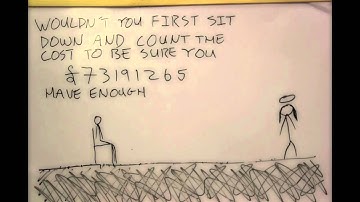 WOULDN'T YOU FIRST SIT
DOWN AND COUNT THE
COST TO BE SURE YOU
£73191265
HAVE ENOUGH